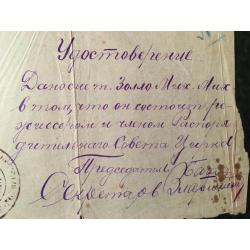 Удостоверение
Даноċие т. Золло Мих. Мих.
в том, что он состоит ре-
жиссером и членом Распоря
дительнаго Совета Цирков
Председатель
Секретарь